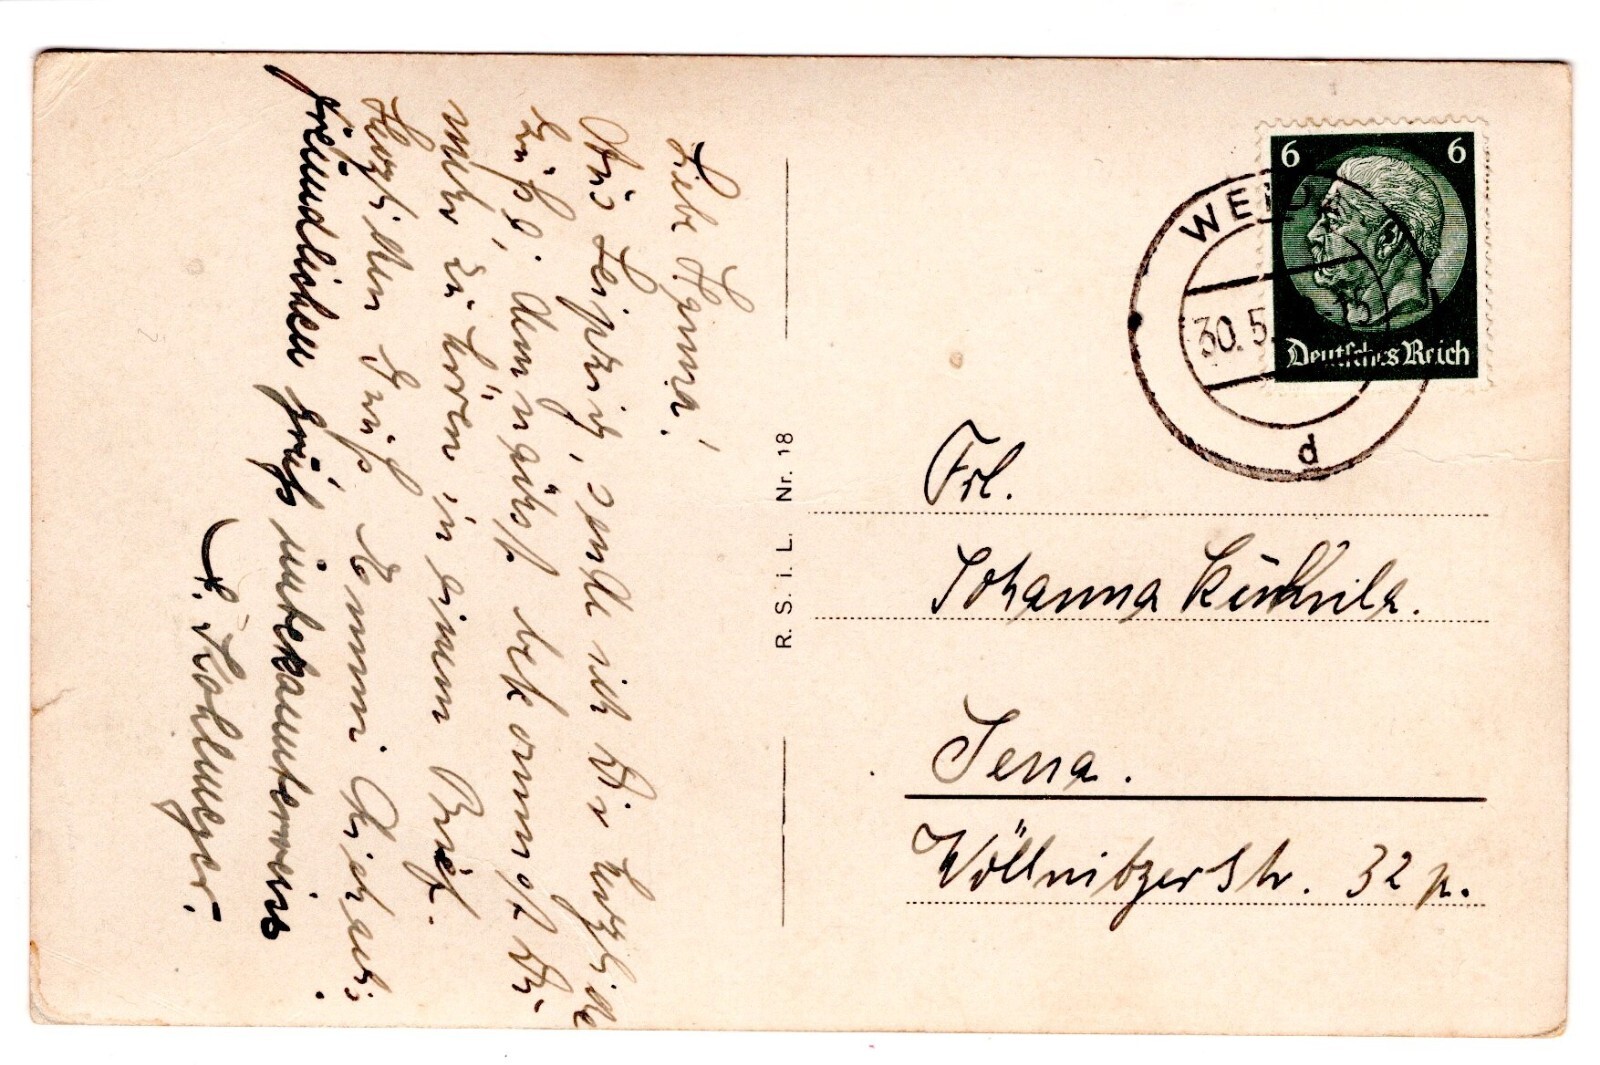 Liebe Hanna!
Aus Leipzig, sende ich Dir herzliche
Grüße, demnächst bekommst Du
mehr zu hören in einem Brief.
Herzlichen Gruß
freundlichen Gruß unbekannterweis
Kohlmeyer.
R. S. i. L. Nr. 18
6 6
Deutsches Reich
WEIDA
30.5.
d
Frl.
Johanna
Jena.
Wöllnitzerstr. 32 p.